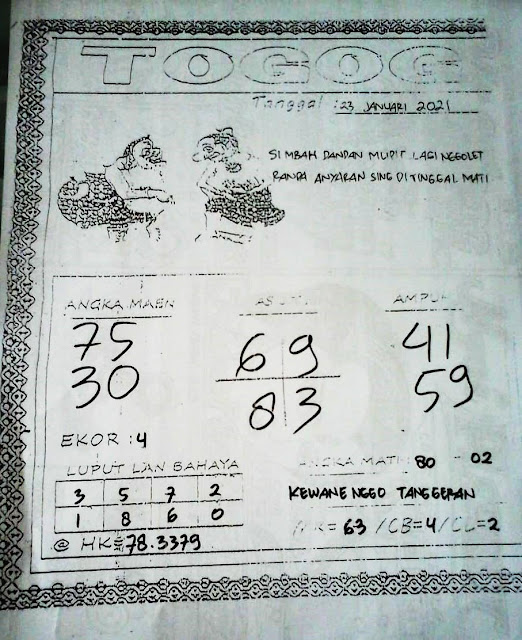 TOGOG
Tanggal : 23 JANUARI 2021
SI MBAH DANDAN MUPIT LAGI NGGOLET
RANDA ANYARAN SING DI TINGGAL MATI
ANGKA MAEN
75
30
69
83
AMPUH
41
59
EKOR : 4
LUPUT LAN BAHAYA
3 5 7 2
1 8 6 0
@ HK = 78.3379
ANGKA MATI 80 - 02
KEWANE NGGO TANGGERAN
= 63 / CB = 4 / CL = 2